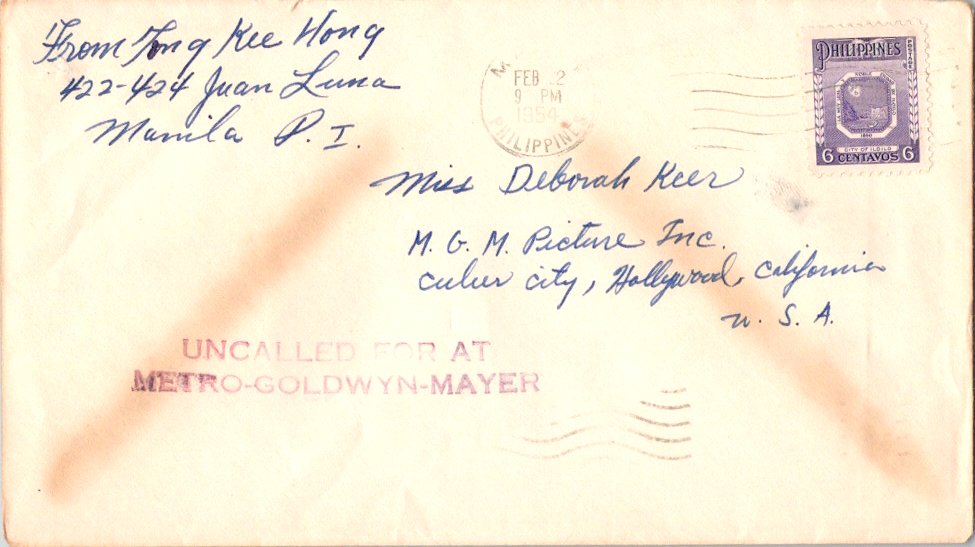 From Tong Kee Hong
422-424 Juan Luna
Manila P. I.
FEB 2
9 PM
1954
PHILIPPINES
PHILIPPINES
CITY OF ILOILO
6 CENTAVOS 6
Miss Deborah Keer
M. G. M. Picture Inc.
Culver City, Hollywood, California
U. S. A.
UNCALLED FOR AT
METRO-GOLDWYN-MAYER